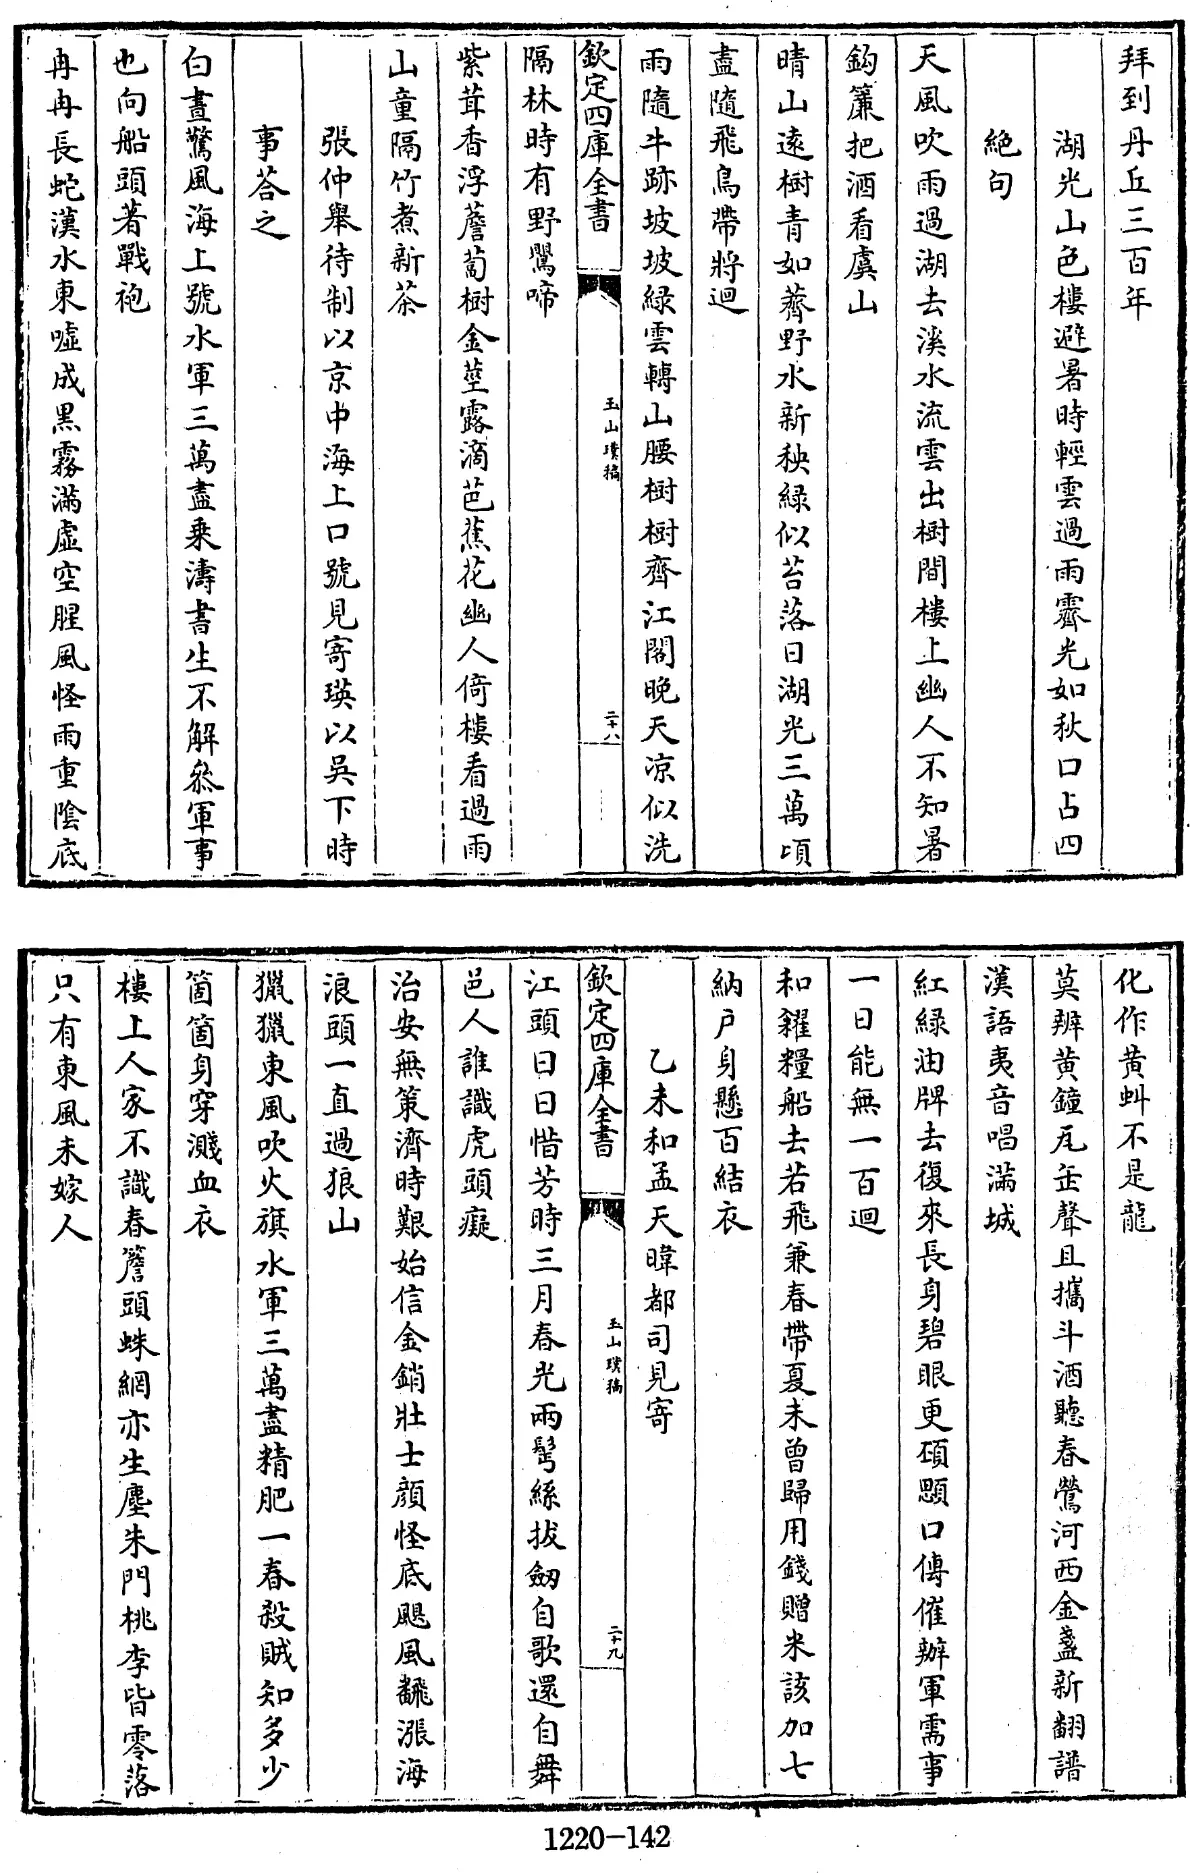 拜到丹丘三百年
湖光山色樓避暑時輕雲過雨霽光如秋口占四
絶句
天風吹雨過湖去溪水流雲出樹間樓上幽人不知暑
鈎簾把酒看虞山
晴山遠樹青如薺野水新秧緑似苔落日湖光三萬頃
盡隨飛鳥帶將迴
雨隨牛跡坡坡緑雲轉山腰樹樹齊江閣晩天凉似洗
欽定四庫全書
玉山璞稿
二十八
隔林時有野鸎啼
紫茸香浮薝蔔樹金莖露滴芭蕉花幽人倚樓看過雨
山童隔竹煮新茶
張仲舉待制以京中海上口號見寄瑛以吳下時
事荅之
白晝驚風海上號水軍三萬盡乗濤書生不解叅軍事
也向船頭著戰袍
冉冉長蛇漢水東噓成黒霧滿虛空腥風怪雨重陰底
化作黄虯不是龍
莫辨黄鐘瓦缶聲且攜斗酒聽春鶯河西金盞新翻譜
漢語夷音唱滿城
紅緑油牌去復來長身碧眼更碩顋口傳催辦軍需事
一日能無一百迴
和糴糧船去若飛兼春帶夏未曾歸用錢贈米該加七
納戸身懸百結衣
乙未和孟天暐都司見寄
欽定四庫全書
玉山璞稿
二十九
江頭日日惜芳時三月春光兩鬂絲拔劒自歌還自舞
邑人誰識虎頭癡
治安無策濟時艱始信金銷壯士顔怪底颶風飜漲海
浪頭一直過狼山
獵獵東風吹火旗水軍三萬盡精肥一春殺賊知多少
箇箇身穿濺血衣
樓上人家不識春簷頭蛛網亦生塵朱門桃李皆零落
只有東風未嫁人
1220-142